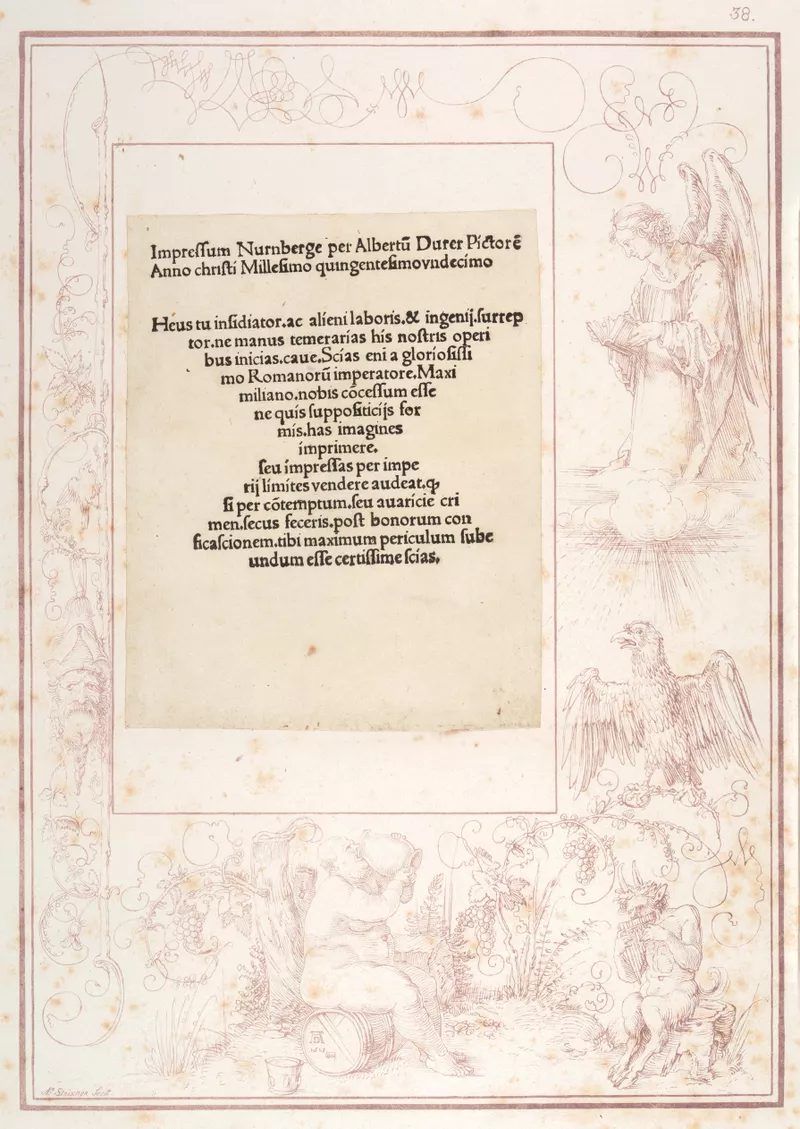 38.
Impreſſum Nurnberge per Albertũ Durer Pictorẽ
Anno chriſti Milleſimo quingenteſimovndecimo
Heus tu inſidiator.ac alieni laboris.& ingenij.ſurrep
tor.ne manus temerarias his noſtris operi
bus inicias.caue.Scias eni a glorioſiſſi
mo Romanorũ imperatore.Maxi
miliano.nobis cõceſſum eſſe
ne quis ſuppoſiticijs for
mis.has imagines
imprimere.
ſeu impreſſas per impe
rij limites vendere audeat.ꝙ
ſi per cõtemptum.ſeu auaricie cri
men.ſecus feceris.poſt bonorum con
ficaſcionem.tibi maximum periculum ſube
undum eſſe certiſſime ſcias.
AD
N. Strixner fecit